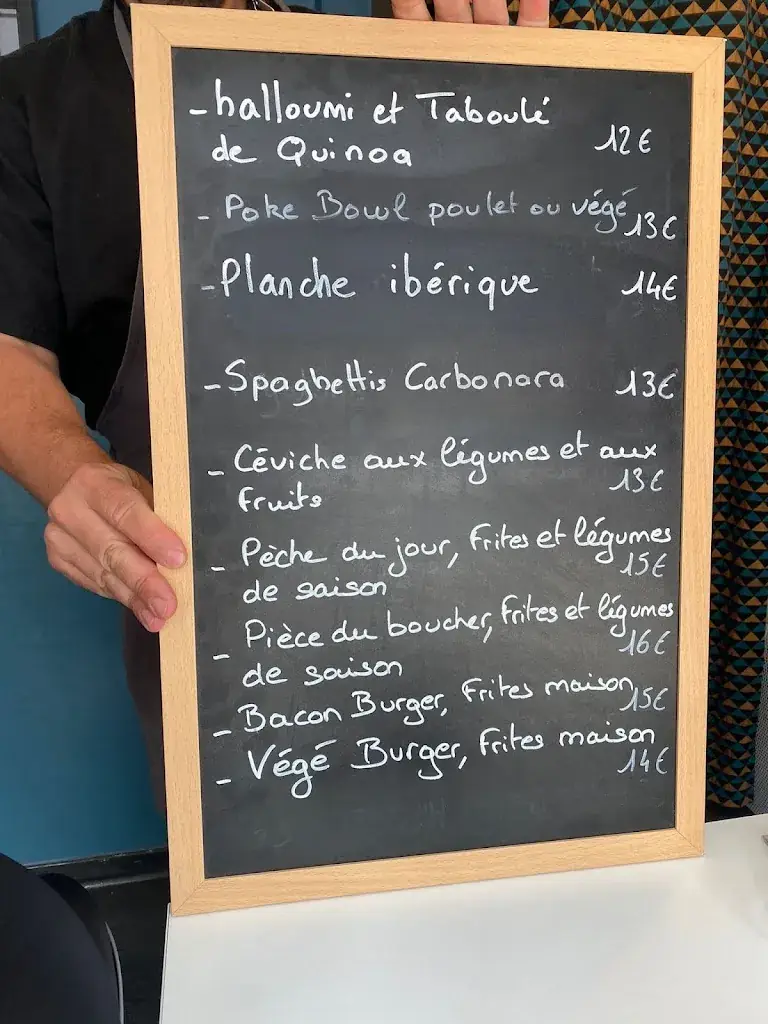 - halloumi et Taboulé
de Quinoa 12€
- Poke Bowl poulet ou végé 13€
- Planche ibérique 14€
- Spaghettis Carbonara 13€
- Céviche aux légumes et aux
fruits 13€
- Pèche du jour, frites et légumes
de saison 15€
- Pièce du boucher, frites et légumes
de saison 16€
- Bacon Burger, frites maison 15€
- Végé Burger, frites maison 14€